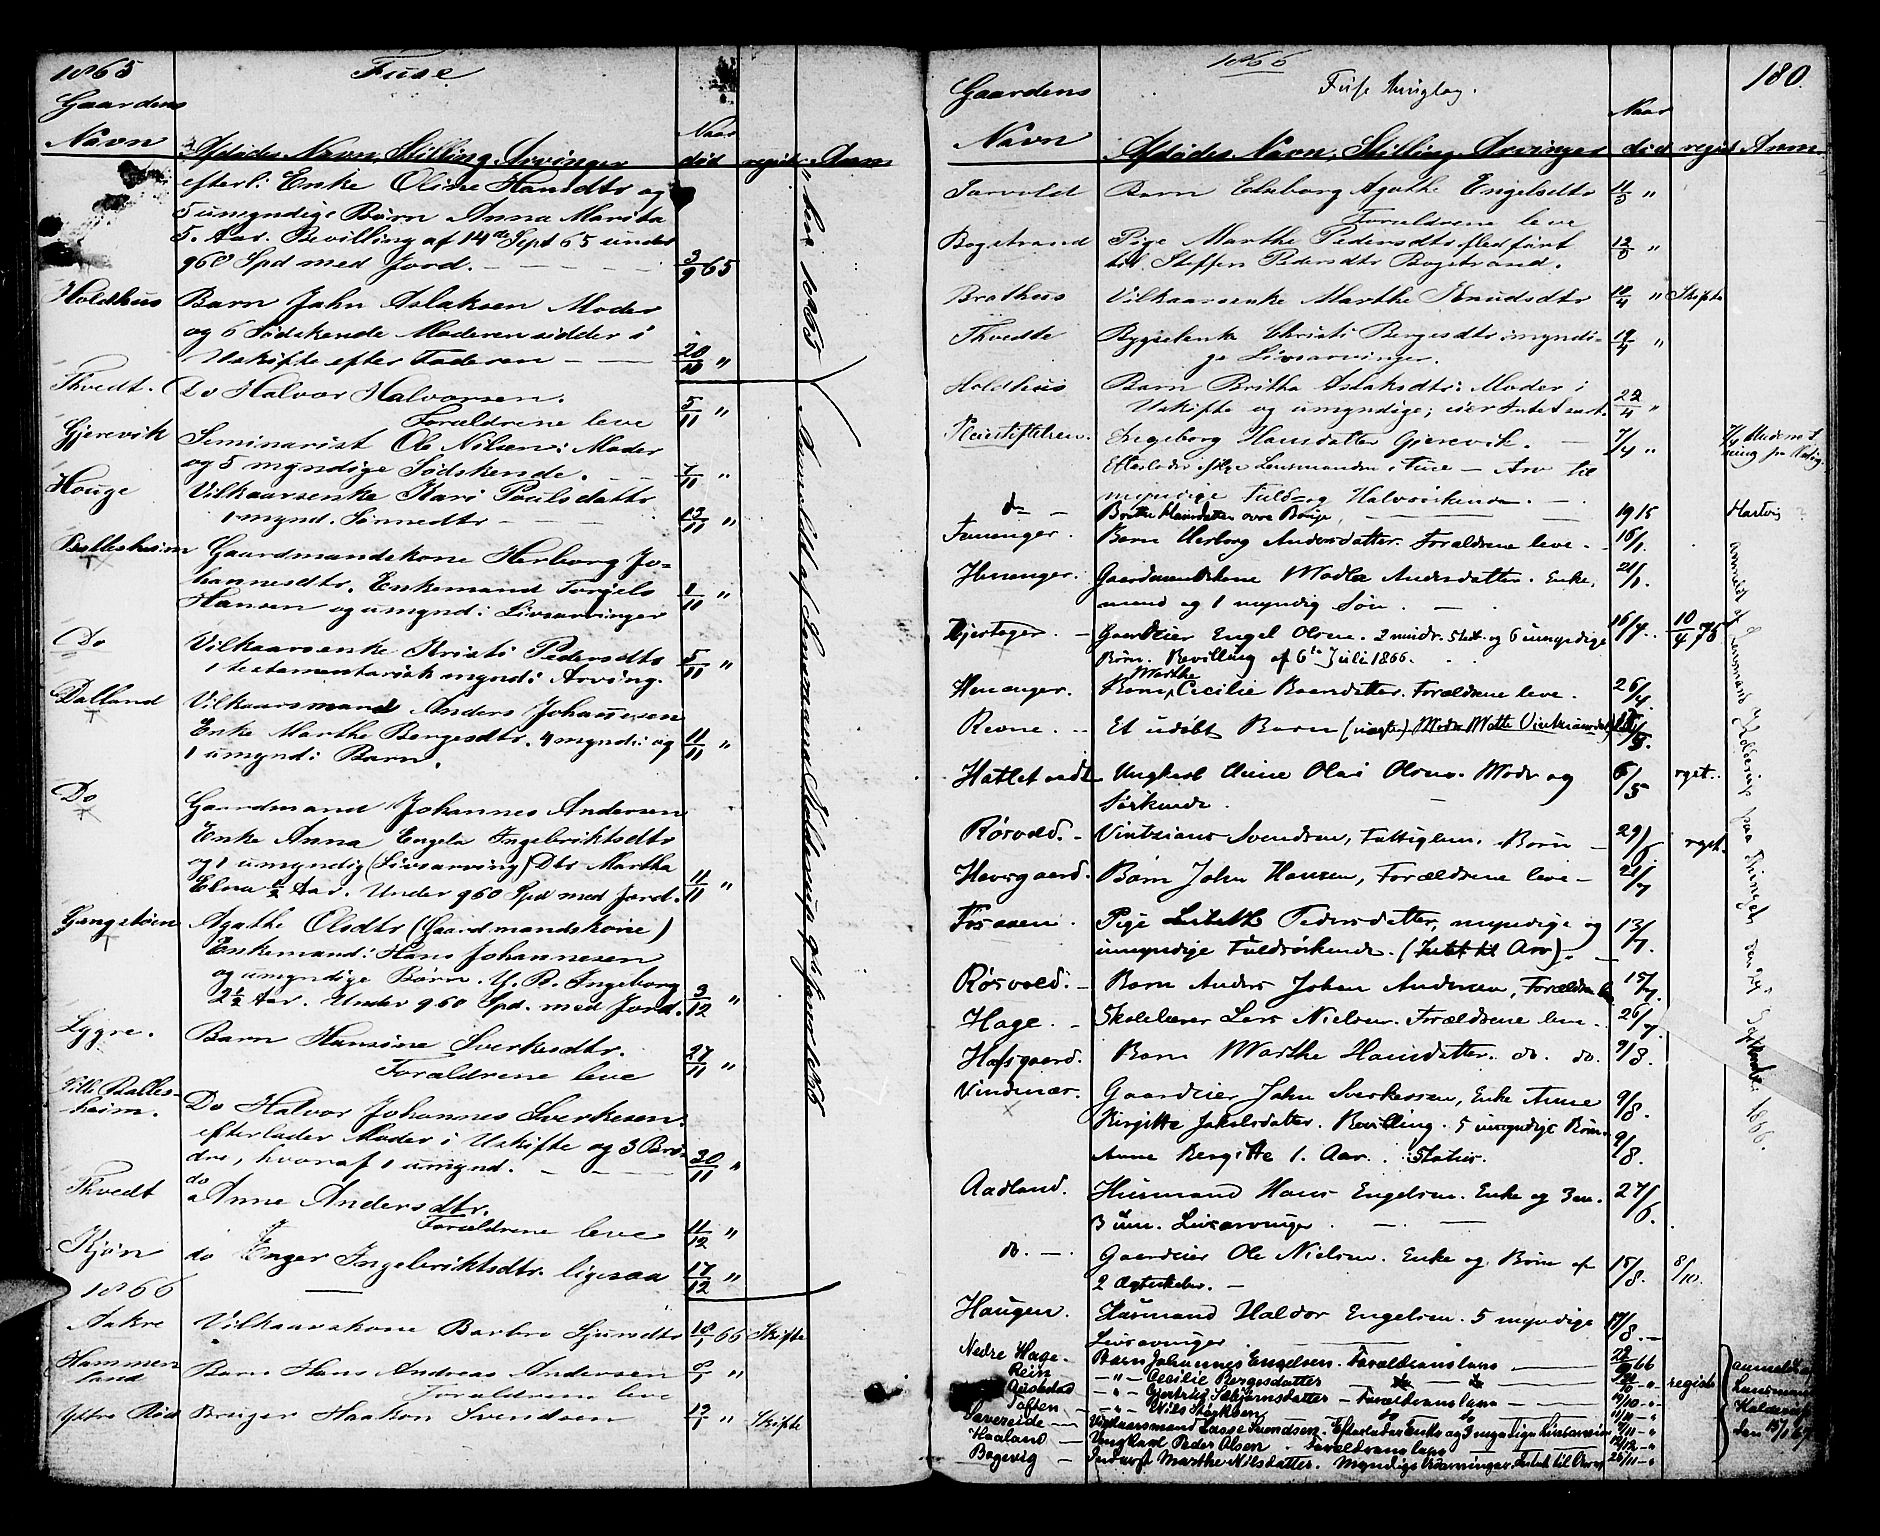 1865 Fuse
Gaardens
Navn Afdødes Navn, Stilling, Arvinger Naar død regist. Anm
efterl: Enke Oline Hansdtr og
5 umyndige Børn Anna Marita
5. Aar. Bevilling af 14de Sept 65 under
960 Spd med Jord. 3/9 65
Holdhus Barn John Aslaksen Moder
og 6 Sødskende Moderen sidder i
Uskifte efter Faderen 20/10 "
Thvedt. Do Halvor Halvorsen.
Forældrene leve 5/11 "
Gjerevik Seminarist Ole Nilsen: Moder
og 5 myndige Sødskende. 7/11 "
Houge Vilkaarsenke Kari Poulsdatter
1 mynd. Sønnedtr 13/11 "
Ballesheim Gaardmandskone Herborg Jo-
hannesdtr. Enkemand Torgils
Hansen og umynd: Livsarvinger 1/11 "
Do Vilkaarsenke Kristi Pedersdtr
1 testamentarisk mynd: Arving. 5/11 "
Dalland Vilkaarsmand Anders Johannesen
Enke Marthe Bergesdtr. 4 mynd: og
1 umynd: Barn. 11/11 "
Do Gaardmand Johannes Andersen
Enke Anna Engela Ingebriktsdtr
og 1 umyndig (Livsarving) Dtr Martha
Elna 1/2 Aar. Under 960 Spd med Jord. 11/11 "
Gjengstøen Agathe Olsdtr (Gaardmandskone)
Enkemand: Hans Johannesen
og umyndige Børn. Y. B. Ingeborg
2 1/2 Aar. Under 960 Spd. med Jord. 3/12 "
Lygre. Barn Hansine Sverkesdtr.
Forældrene leve 27/11 "
Lille Balles-
heim. Do Halvor Johannes Sverkesen.
efterlader Moder i Uskifte og 3 Brø-
dre, hvoraf 1 umynd. 30/11 "
Thvedt do Anne Andersdtr.
Forældrene leve 11/12 "
Kjøn do Enger Ingebriktsdtr. ligesaa 17/12 "
1866
Aakre Vilkaarskone Barbro Sjursdtr 10/1 66 Skifte
Hammer-
land Barn Hans Andreas Andersen
Forældrene leve "
Ytre Rød Brøiger Haakon Svendsen 12/1 " Skifte
" her 1865
Anmeldt af Lensmand Kolderup 9de Januar 1866
1866 180.
Fuse Thinglag.
Gaardens
Navn Afdødes Navn, Stilling, Arvinger Naar død regist Anm
Barn Edeborg Agathe Engelsdtr 11/3 "
Forældrene leve
Bogstrand Pige Marthe Pedersdtr fledført
til Steffen Pedersdtr Bogstrand. 12/3 "
Brathus Vilkaarsenke Marthe Knudsdtr 10/4 " Skifte
Thvedte Bygselenke Christi Bergesdtr: myndi-
ge Livsarvinger. 19/4 "
Holdhus Barn Britha Aslaksdtr: Moder i
Uskifte og umyndige; eier Intet 22/4 "
Pleiestiftelsen. Ingeborg Hansdatter Gjerevik. 7/4 "
Efterlader ifølge Lensmanden i Fuse Arv til
myndige Fuld- og Halvsødskende.
do Brithe Hansdatter 19/5
Barn Herborg Andersdatter. Forældrene leve. 16/1.
Henanger. Gaardmandskone Madla Andersdatter. Enke-
mand og 1 myndig Søn. 21/1.
Gaardeier Engel Olsen. 2 mindr. og 6 umyndige 16/4. 10/4 75
Børn. Bevilling af 6te Juli 1866.
Henanger. Barn Marthe Cecilie Baardsdatter. Forældrene leve. 26/4.
Revne. Et udøbt Barn (uægte) Moder Marthe
Hatletvedt Ungkarl Olai Olsen. Moder og 6/5 rget.
Sødskende.
Røsvold. Vintzians Svendsen, Fattiglem. Børn 29/5 rget.
Hevsgaard. Barn John Hansen, Forældrene leve 21/7
Fossaen. Pige Lisbeth Pedersdatter, myndige og 13/7.
umyndige Fuldsødskende. (Intet til Arv).
Røsvold. Barn Anders Johan Andersen, Forældrene leve 15/7.
Hage. Skolelærer Lars Nielsen. Forældrene leve. 26/7.
Hafsgaard. Barn Marthe Hansdatter. do. do. 9/8.
Vindenær. Gaardeier John Sverkessen, Enke Anne 9/8.
Birgitte Jakobsdatter. Bevilling. 5 umyndige Børn.
Anne Bergitte 1. Aar. 9/8.
Aadland. Husmand Hans Engelsen. Enke og 3 m. 27/6.
3 um. Livsarvinger
do. Gaardeier Ole Nielsen. Enke og Børn af 15/8. 8/10.
2 Ægteskaber.
Haugen. Husmand Haldor Engelsen. 5 myndige 17/8.
Livsarvinger
Nedre Hage. Barn Johannes Engelsen. Forældrene leve 66
Rein " Cecilie Bergesdatter do do
" Gjertrud Forældrene leve 19/10
Toften " Nils do do
Sævereide Vilkaarsmand Lasse Svendsen. Efterlader Enke og 3 myndige Livsarvinger
Haaland Ungkarl Peder Olsen Forældrene leve
Bogevig Inderst Marthe Nilsdatter. Myndige Udarvinger. Intet til Arv 26/11
regist
anmeldt af
Lensmand
Kolderup
den 15/1 67
anmeldt af Lensmand Kolderup paa Thinget den September 1866.